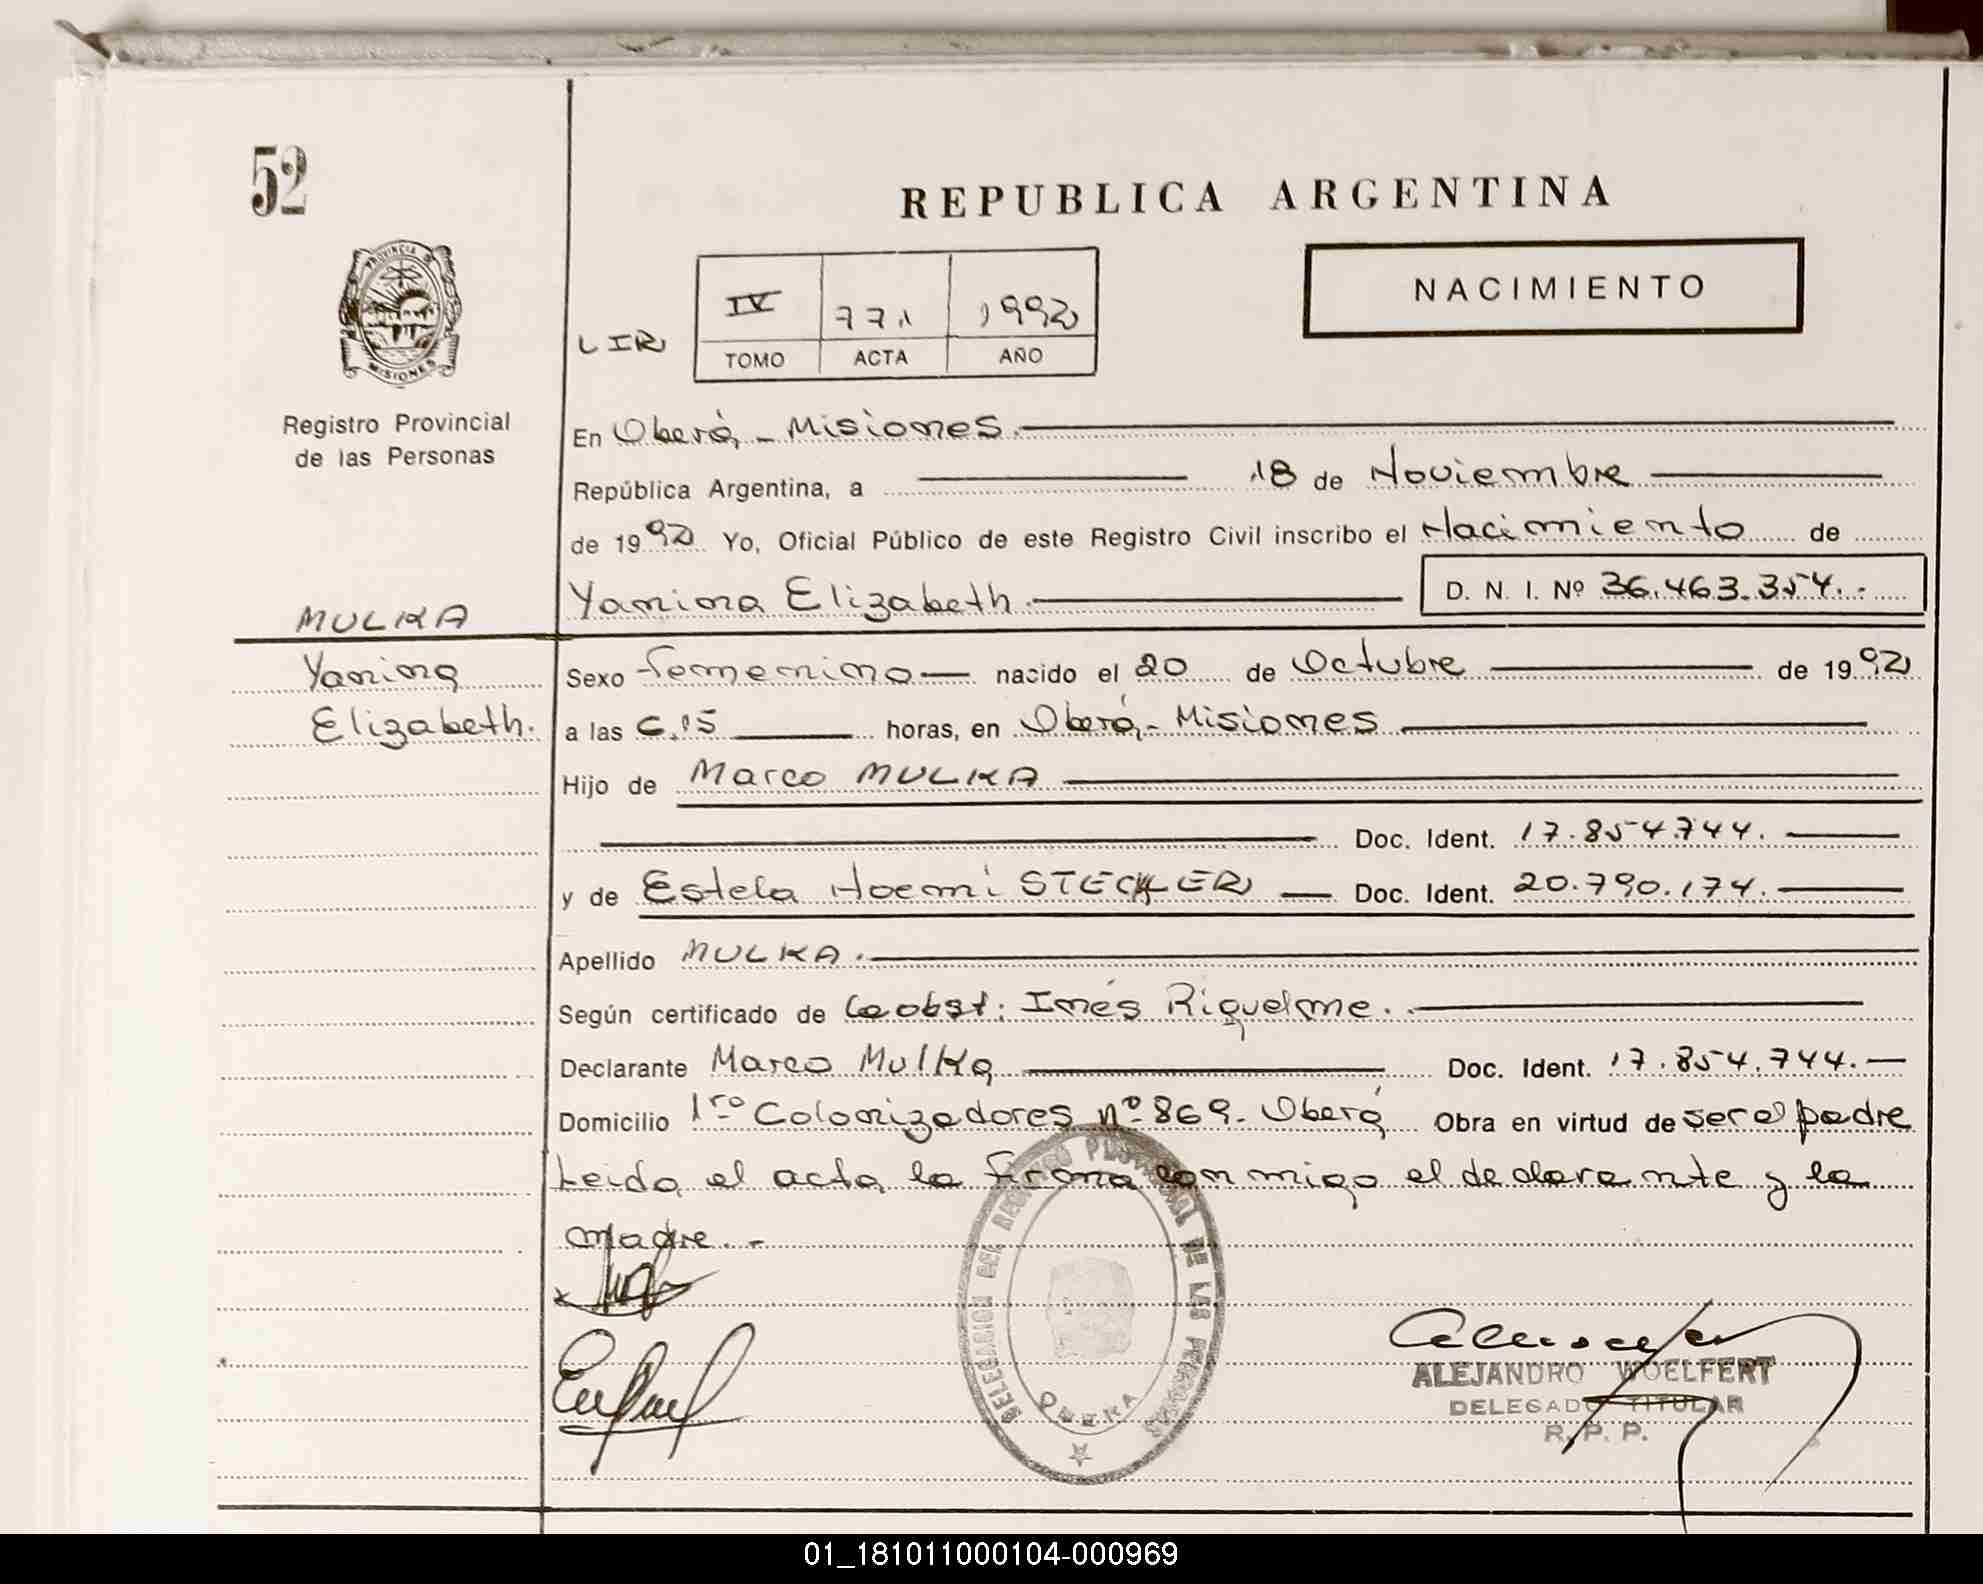 52
REPUBLICA ARGENTINA
PROVINCIA DE
MISIONES
NACIMIENTO
LIR
IV 771 1992
TOMO ACTA AÑO
Registro Provincial
de las Personas
En Oberá, - Misiones.
República Argentina, a 18 de Noviembre
de 1992 Yo, Oficial Público de este Registro Civil inscribo el Nacimiento de
Yanina Elizabeth. D. N. I. Nº 36.463.354.-
MULKA
Yanina
Elizabeth.
Sexo femenino nacido el 20 de Octubre de 1992
a las 6,15 horas, en Oberá,- Misiones
Hijo de Marco MULKA
Doc. Ident. 17.854.744.
y de Estela Noemí STECKLER Doc. Ident. 20.790.174.
Apellido MULKA.
Según certificado de obst: Inés Riquelme.
Declarante Marco Mulka Doc. Ident. 17.854.744.
Domicilio 1ro Colonizadores nº 869- Oberá Obra en virtud de ser el padre
Leida el acta la firma conmigo el declarante y la
madre.-
DELEGACION DEL REGISTRO PROVINCIAL DE LAS PERSONAS
OBERA
ALEJANDRO WOELFERT
DELEGADO TITULAR
R. P. P.
01_181011000104-000969